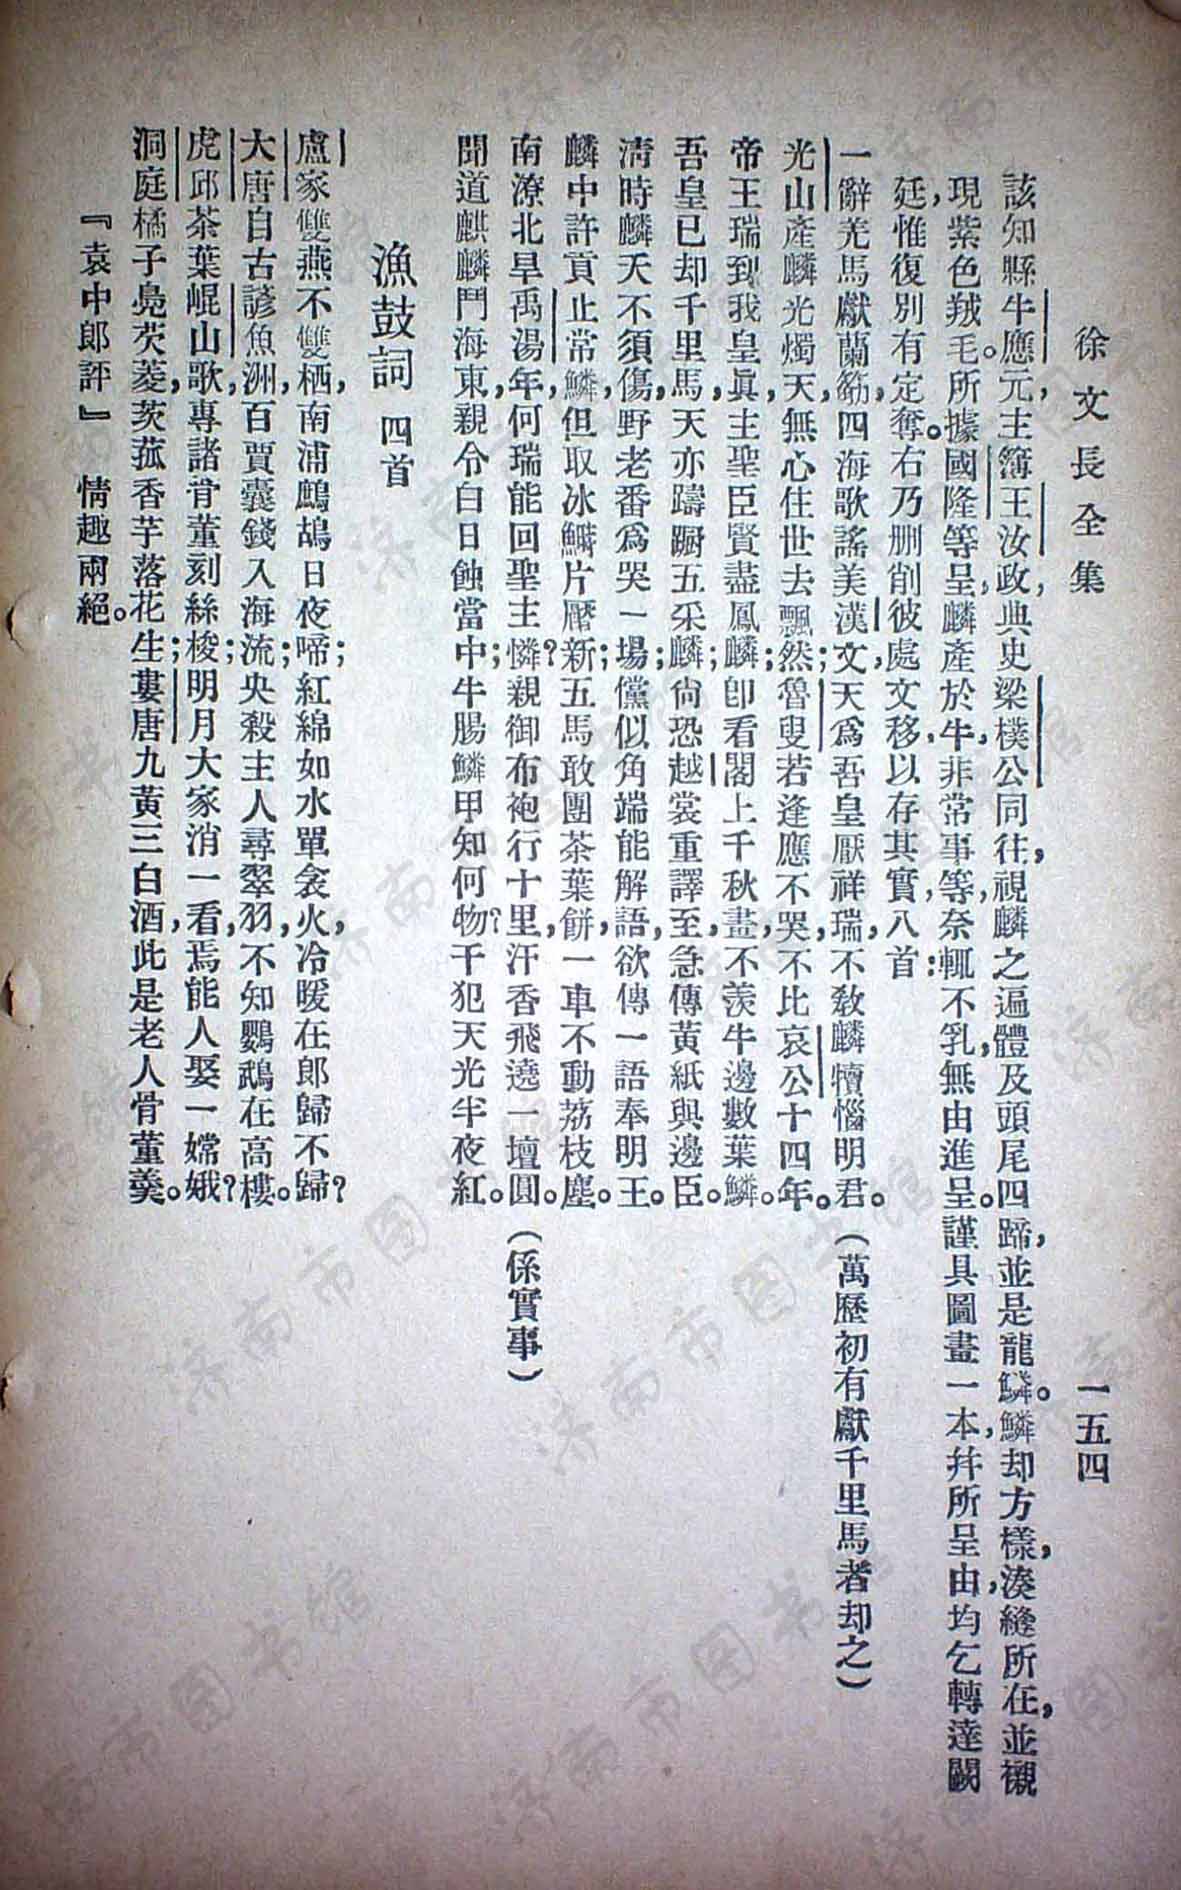 徐文長全集
一五四
該知縣牛應元，主簿王汝政，典史梁樸，公同往視，麟之遍體及頭尾四蹄，並是龍鱗。鱗却方樣，湊縫所在，並襯
現紫色羢毛。所據國隆等呈，麟產於牛，非常事等，奈輒不乳，無由進呈。謹具圖畫一本，并所呈由，均乞轉達闕
廷，惟復別有定奪。右乃删削彼處文移，以存其實，八首：
一辭羌馬獻蘭筋，四海歌謠美漢文；天爲吾皇厭祥瑞，不敎麟犢惱明君。（萬歷初有獻千里馬者却之）
光山產麟光燭天，無心住世去飄然；魯叟若逢應不哭，不比哀公十四年。
帝王瑞到我皇眞，主聖臣賢盡鳳麟；卽看閣上千秋畫，不羨牛邊數葉鱗。
吾皇已却千里馬，天亦躊蹰五采麟；尙恐越裳重譯至，急傳黃紙與邊臣。
淸時麟天不須傷，野老番爲哭一場；儻似角端能解語，欲傳一語奉明王。
麟中許貢止常鱗，但取冰鰣片壓新；五馬敢團茶葉餅，一車不動荔枝塵。
南潦北旱禹湯年，何瑞能回聖主憐？親御布袍行十里，汗香飛遶一壇圓。（係實事）
聞道麒麟鬥海東，親令白日蝕當中；牛腸鱗甲知何物？干犯天光半夜紅。
漁鼓詞　四首
盧家雙燕不雙栖，南浦鷓鴣日夜啼；紅綿如水單衾火，冷暖在郎歸不歸？
大唐自古諺魚洲，百賈囊錢入海流；央殺主人尋翠羽，不知鸚鵡在高樓。
虎邱茶葉崐山歌，專諸骨董刻絲梭；明月大家消一看，焉能人娶一嫦娥？
洞庭橘子鳧茨菱，茨菰香芋落花生；婁唐九黃三白酒，此是老人骨董羹。
『袁中郎評』　情趣兩絕。